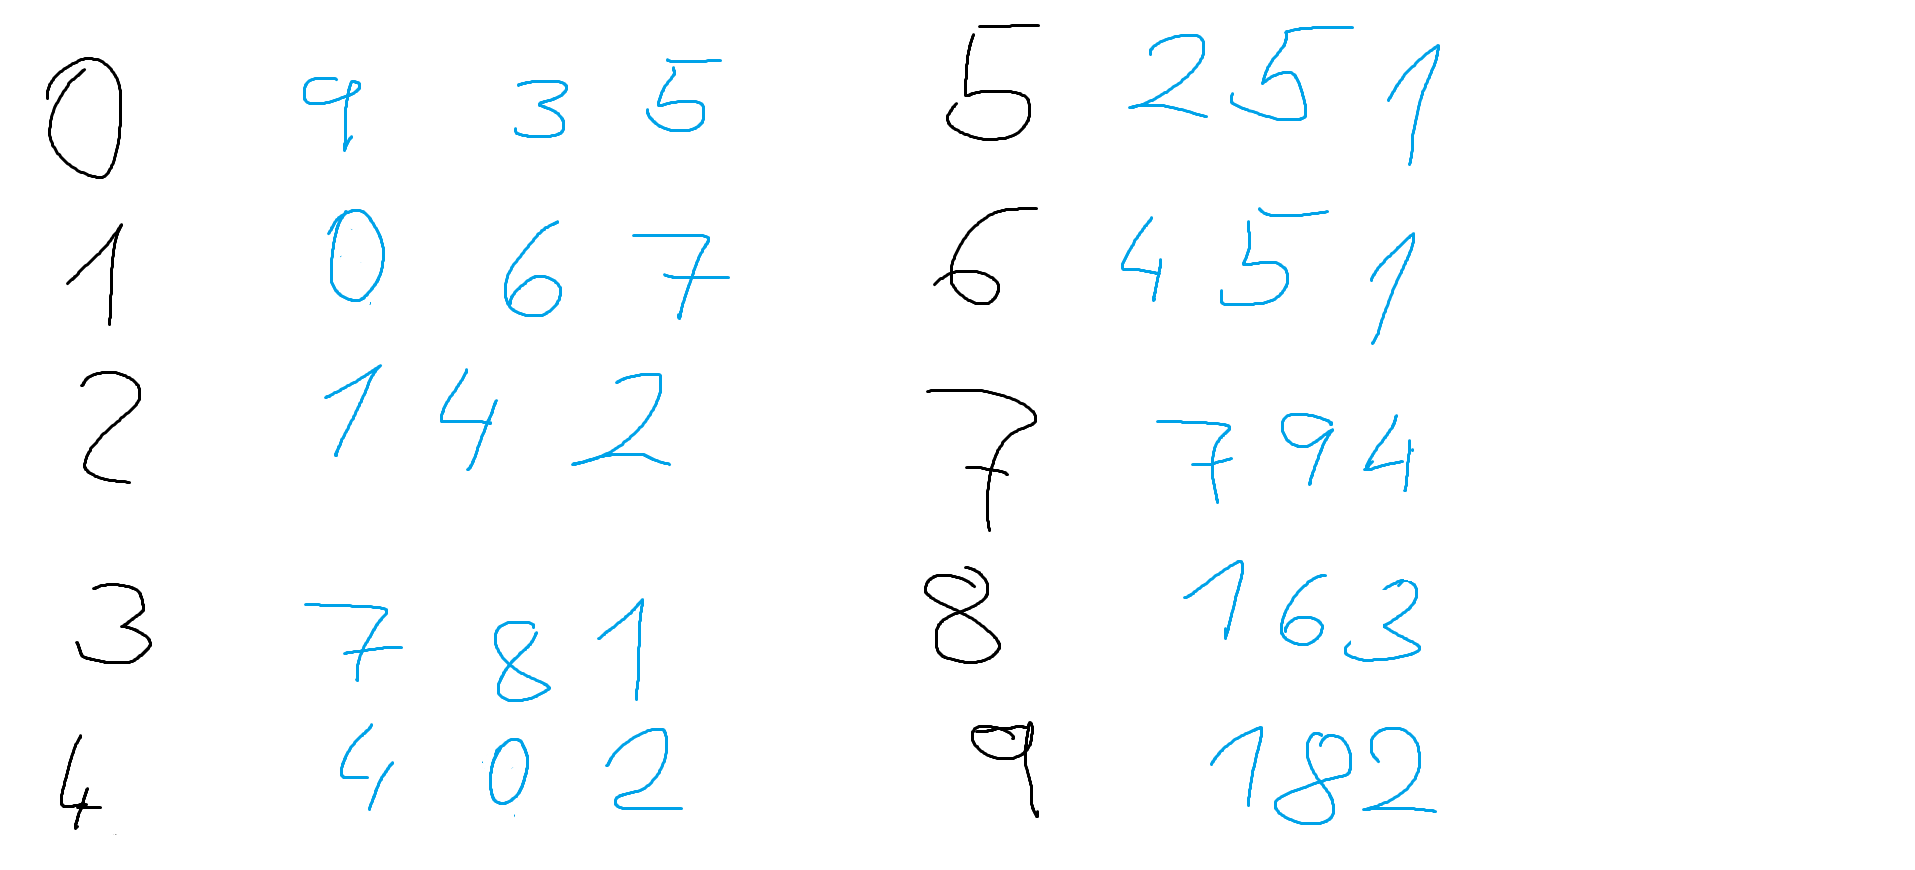 0 9 3 5
1 0 6 7
2 1 4 2
3 7 8 1
4 4 0 2
5 2 5 1
6 4 5 1
7 7 9 4
8 1 6 3
9 1 8 2